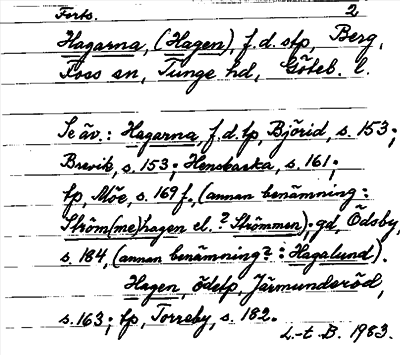 Forts. 2
Hagarna, (Hagen), f.d. stp, Berg,
Foss sn, Tunge hd, Göteb. l.
Se äv.: Hagarna, f.d. tp, Björid, s. 153;
Brevik, s. 153; Henskaska, s. 161;
tp, Möe, s. 169 f., (annan benämning:
Ström(me)hagen el. ? Strömmen); gd, Ödsby,
s. 184, (annan benämning? : Hagalund).
Hagen, ödetp, Järmunderöd,
s. 163; tp, Torreby, s. 182.
L-t B. 1983.